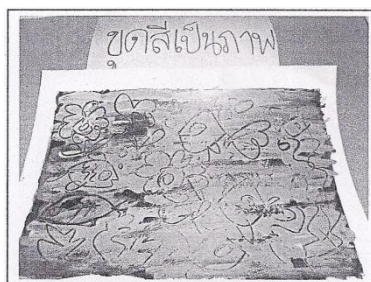 ขูดสีเป็นภาพ